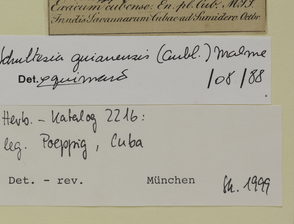 Exacum cubense. En. pl. Cub. MSS.
In udis Savannarum Cubae ad Sumidero Octbr.
Schultesia guianensis (Aubl.) Malme
Det. /08/88
Herb. - Katalog 2216:
leg. Poeppig, Cuba
Det. - rev. München 1999